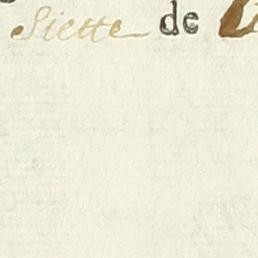 Siette de